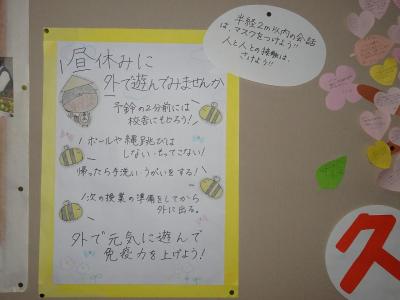 昼休みに
外で遊んでみませんか
予鈴の2分前には
校舎にもどろう!
ボールや縄跳びは
しない・もってこない!
帰ったら手洗い・うがいをする!
次の授業の準備をしてから
外に出る。
外で元気に遊んで
免疫力を上げよう!
半径2m以内の会話
は、マスクをつけよう!!
人と人との接触は、
さけよう!!
久